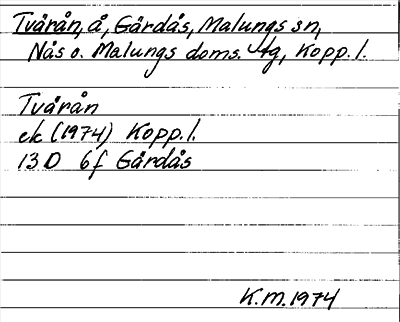 Tvårån, å, Gärdås, Malungs sn,
Nås o. Malungs doms. tg, Kopp. l.
Tvårån
ek (1974) Kopp. l.
13 D 6f Gärdås
K.M. 1974